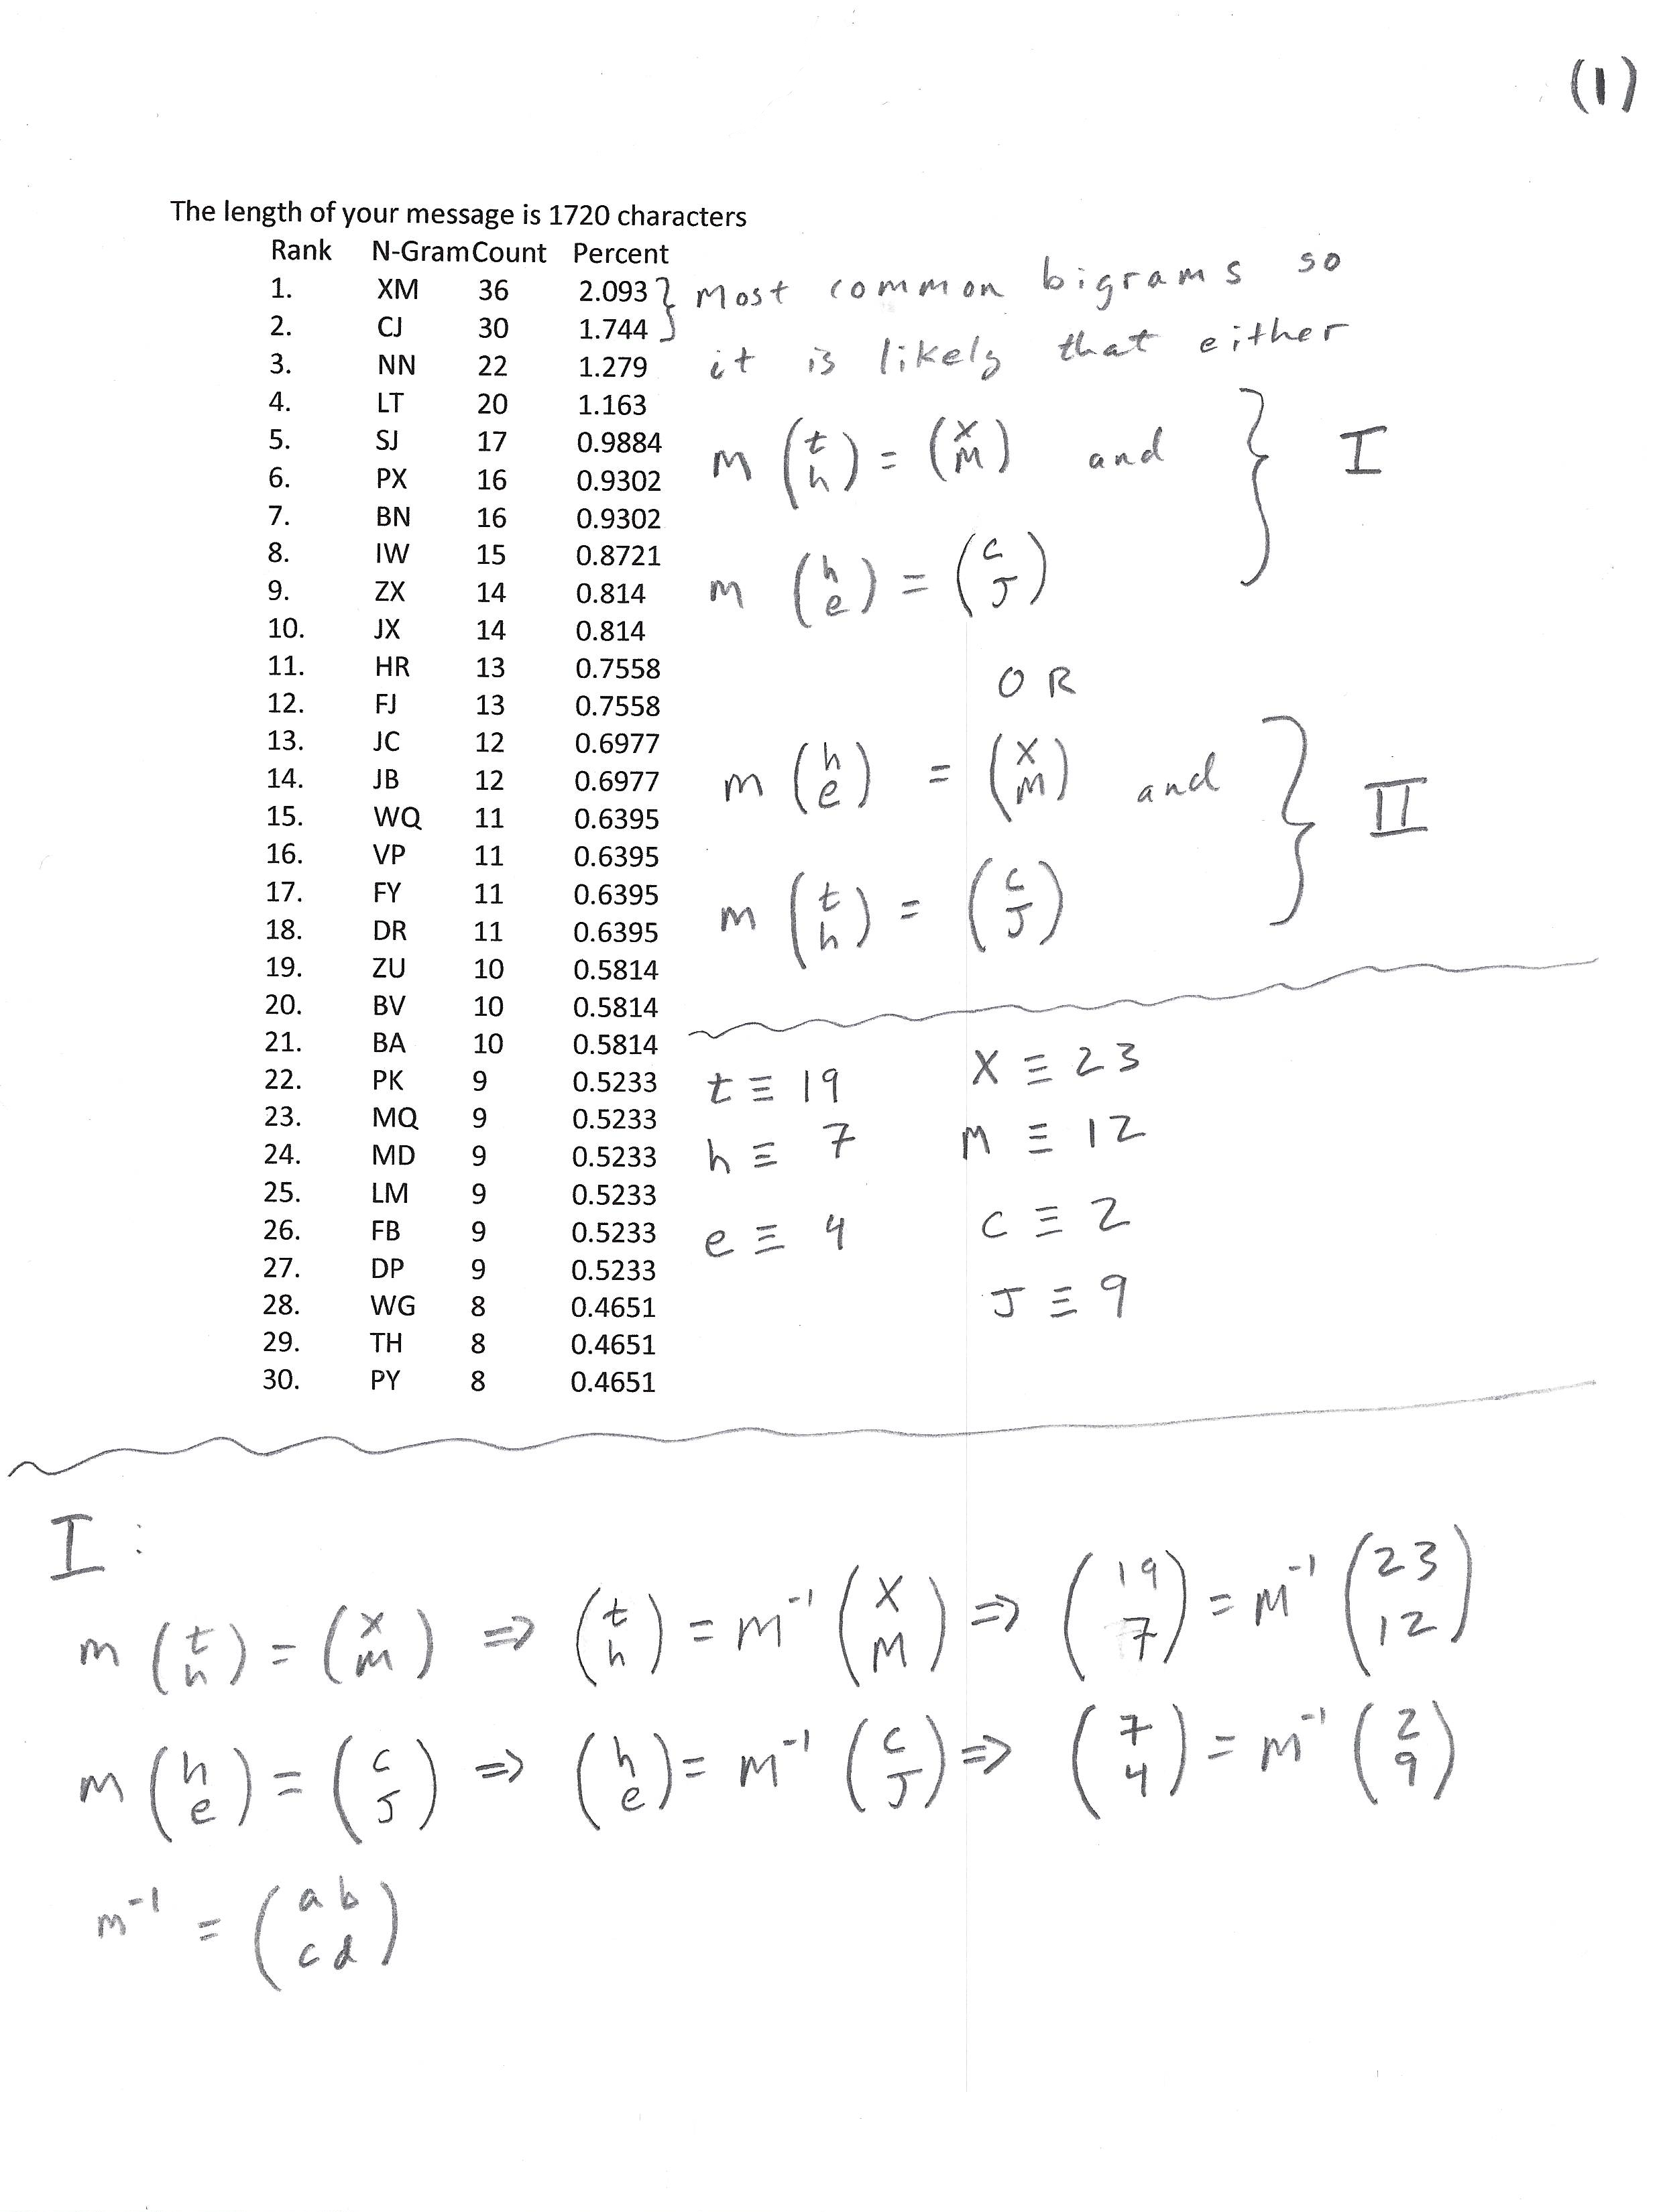 (1)
The length of your message is 1720 characters
Rank N-Gram Count Percent
1. XM 36 2.093
2. CJ 30 1.744
3. NN 22 1.279
4. LT 20 1.163
5. SJ 17 0.9884
6. PX 16 0.9302
7. BN 16 0.9302
8. IW 15 0.8721
9. ZX 14 0.814
10. JX 14 0.814
11. HR 13 0.7558
12. FJ 13 0.7558
13. JC 12 0.6977
14. JB 12 0.6977
15. WQ 11 0.6395
16. VP 11 0.6395
17. FY 11 0.6395
18. DR 11 0.6395
19. ZU 10 0.5814
20. BV 10 0.5814
21. BA 10 0.5814
22. PK 9 0.5233
23. MQ 9 0.5233
24. MD 9 0.5233
25. LM 9 0.5233
26. FB 9 0.5233
27. DP 9 0.5233
28. WG 8 0.4651
29. TH 8 0.4651
30. PY 8 0.4651
} most common bigrams so
it is likely that either
m (t h) = (X M) and } I
m (h e) = (C J)
OR
m (h e) = (X M) and } II
m (t h) = (C J)
t ≡ 19 X ≡ 23
h ≡ 7 M ≡ 12
e ≡ 4 C ≡ 2
J ≡ 9
I:
m (t h) = (X M) => (t h) = m⁻¹ (X M) => (19 7) = m⁻¹ (23 12)
m (h e) = (C J) => (h e) = m⁻¹ (C J) => (7 4) = m⁻¹ (2 9)
m⁻¹ = (a b c d)